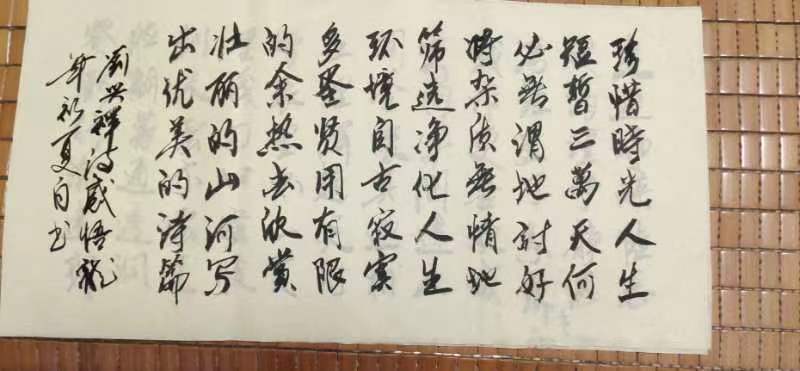 珍惜時光人生
短暫三萬天何
必無谓地討好
将杂质無情地
筛选净化人生
环境自古寂寞
多圣贤用有限
的余热去欣赏
壮丽的山河写
出优美的诗篇
刘兴祥诗感悟龙
年初夏自书